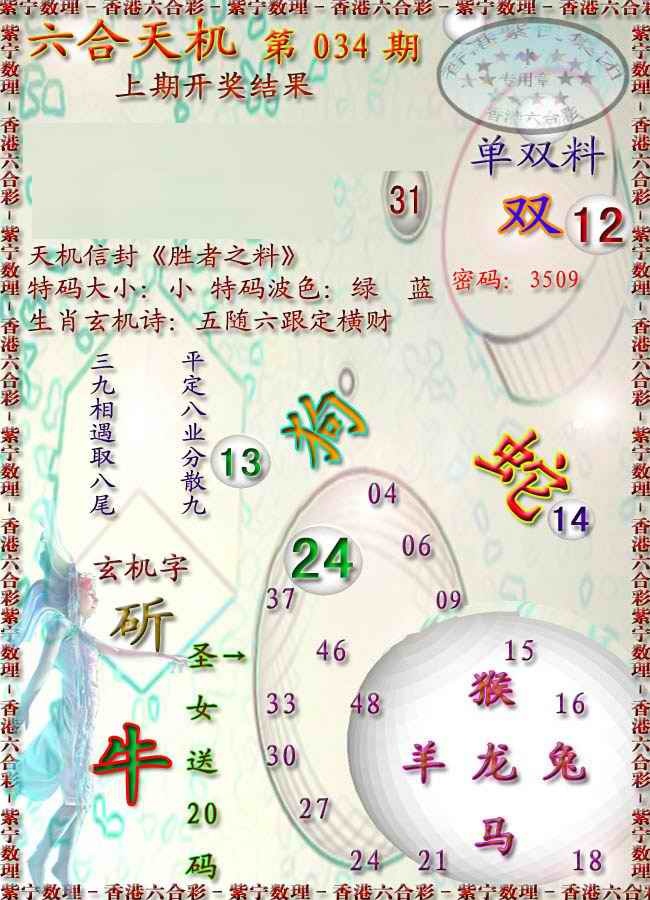 紫宁数理－香港六合彩－紫宁数理－香港六合彩－紫宁数理－香港六合彩
六合天机 第 034 期
上期开奖结果
香港紫宁集团
专用章
香港六合彩
单双料
31
双 12
天机信封《胜者之料》
特码大小：小 特码波色：绿 蓝
密码：3509
生肖玄机诗：五随六跟定横财
三九相遇取八尾
平定八业分散九
13
狗
蛇
14
04
24
06
玄机字
37
09
斫
46
15
圣→
猴
女
33
48
16
牛
羊 龙 兔
送
30
20
27
马
码
24
21
18
紫宁数理－香港六合彩－紫宁数理－香港六合彩－紫宁数理－香港六合彩